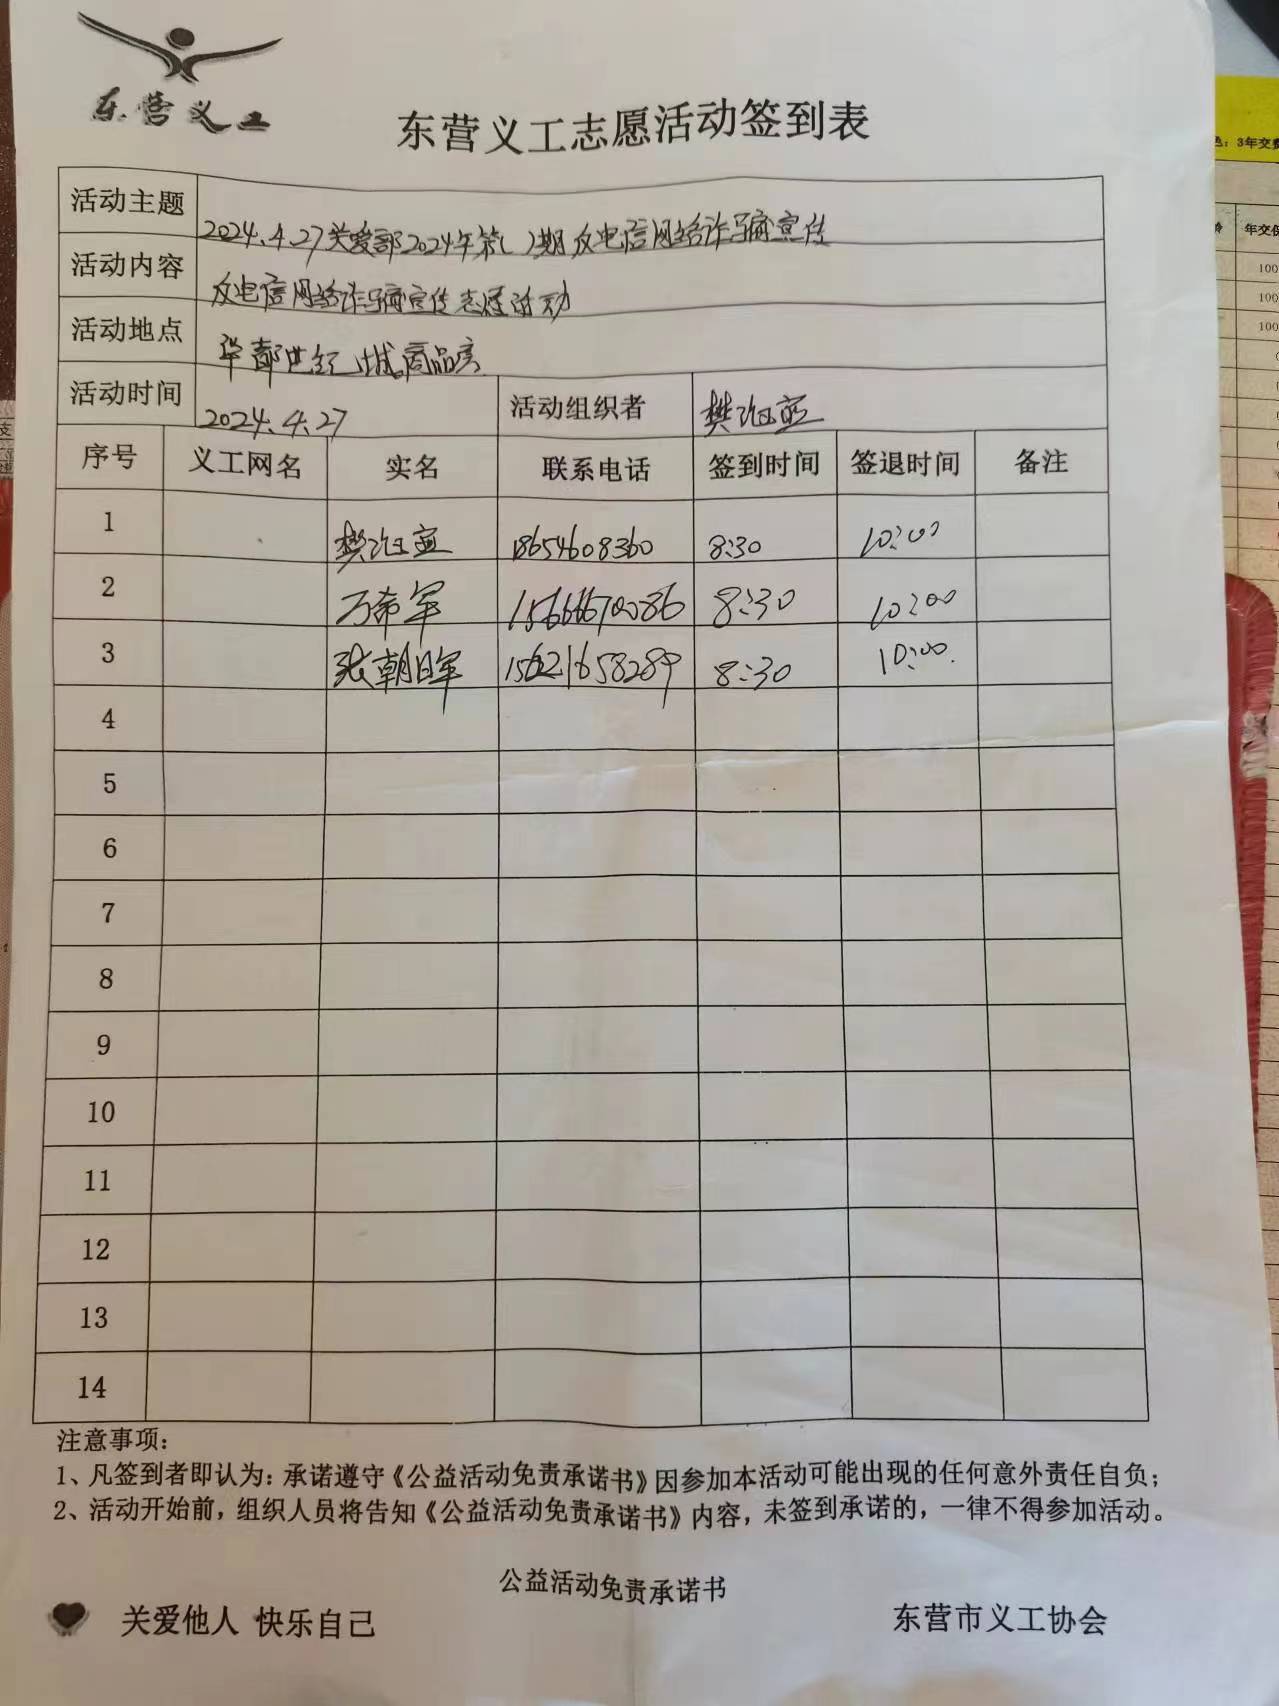 东营义工
东营义工志愿活动签到表
色: 3年交费
活动主题 2024.4.27关爱部2024年第( )期反电信网络诈骗宣传
年交保
活动内容 反电信网络诈骗宣传志愿活动
100
100
活动地点 华都世纪城商品房
100
活动时间 2024.4.27 活动组织者 樊
序号 义工网名 实名 联系电话 签到时间 签退时间 备注
1 樊 18654608360 8:30 10:00
2 万希军 8:30 10:00
3 张朝晖 15621658289 8:30 10:00.
4
5
6
7
8
9
10
11
12
13
14
注意事项:
1、凡签到者即认为: 承诺遵守《公益活动免责承诺书》因参加本活动可能出现的任何意外责任自负;
2、活动开始前, 组织人员将告知《公益活动免责承诺书》内容, 未签到承诺的, 一律不得参加活动。
公益活动免责承诺书
关爱他人 快乐自己 东营市义工协会